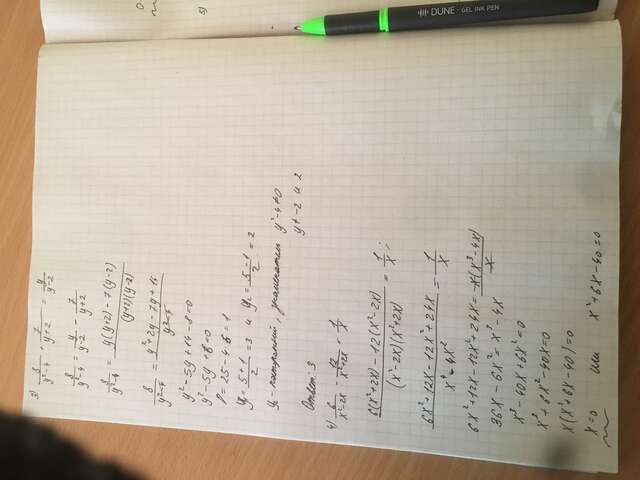 3) 8/(y²-4) + 7/(y+2) = y/(y-2)
8/(y²-4) = y/(y-2) - 7/(y+2)
8/(y²-4) = (y(y+2) - 7(y-2))/((y+2)(y-2))
8/(y²-4) = (y²+2y-7y+14)/(y²-4)
y²-5y+14-8=0
y²-5y+6=0
D=25-4·6=1
y₁=(5+1)/2=3 и y₂=(5-1)/2=2
y₂-посторонний, знаменатель y²-4≠0
y≠-2 и 2
Ответ: 3
4) 6/(x²-2x) - 12/(x²+2x) = 1/x
(6(x²+2x)-12(x²-2x))/((x²-2x)(x²+2x)) = 1/x;
(6x²+12x-12x²+24x)/(x⁴-4x²) = 1/x
6x²+12x-12x²+24x = x(x³-4x)/x
36x-6x²=x³-4x
x³-40x+6x²=0
x³+6x²-40x=0
x(x²+6x-40)=0
x=0 или x²+6x-40=0
0
5)
DUNE
GEL INK PEN